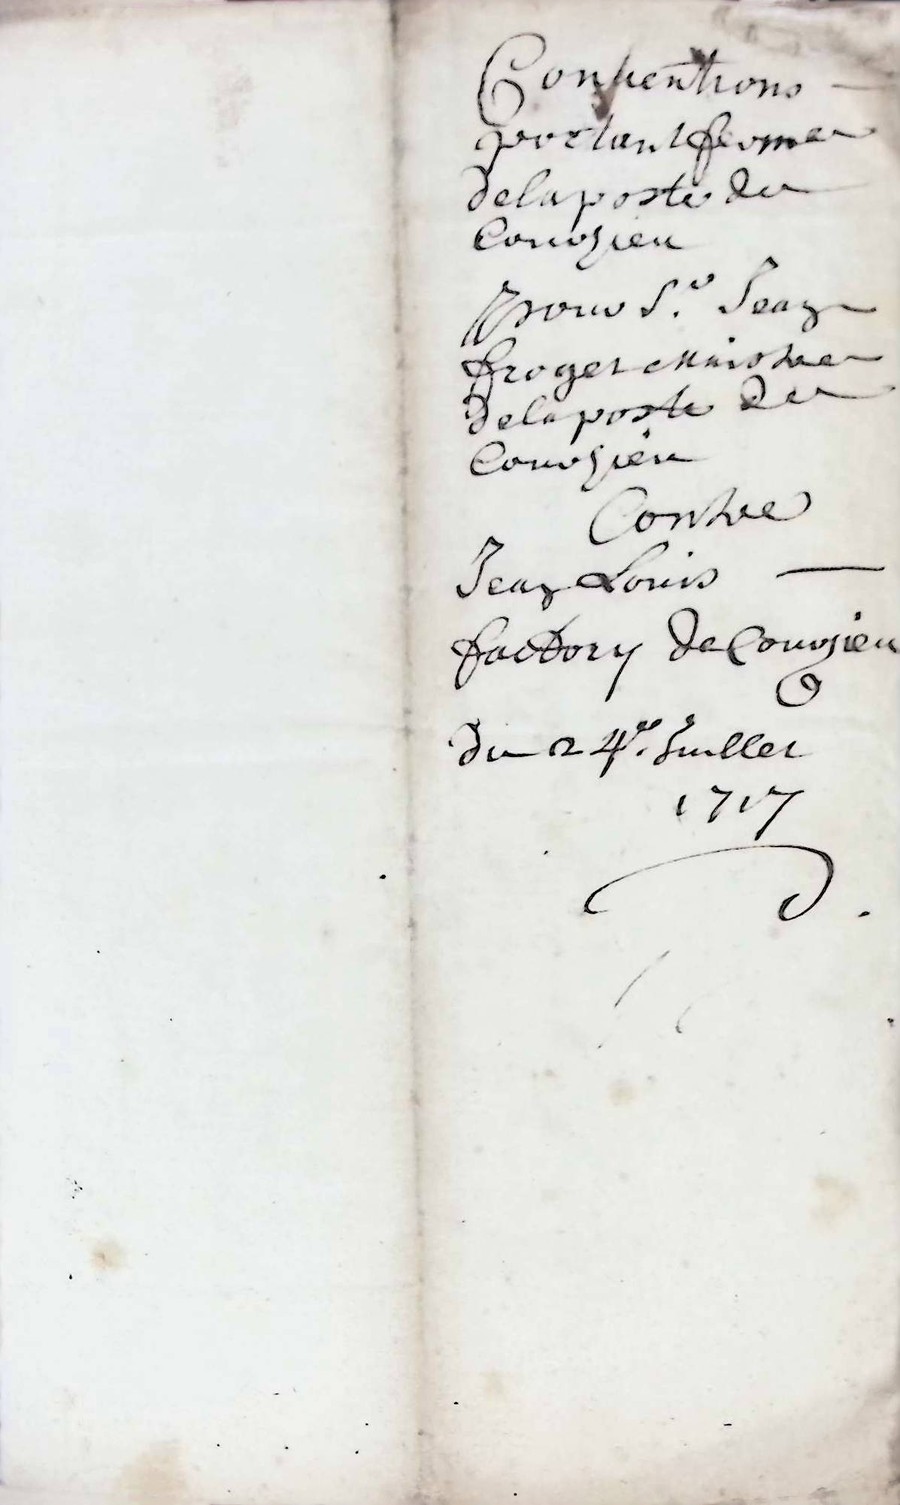 Conventions
portant ferme
de la poste de
Courzieu
Pour S.r Jean
froget Maistre
de la poste de
Courzieu
Contre
Jean Louis
factory de Courzieu
du 24.me Juillet
1717